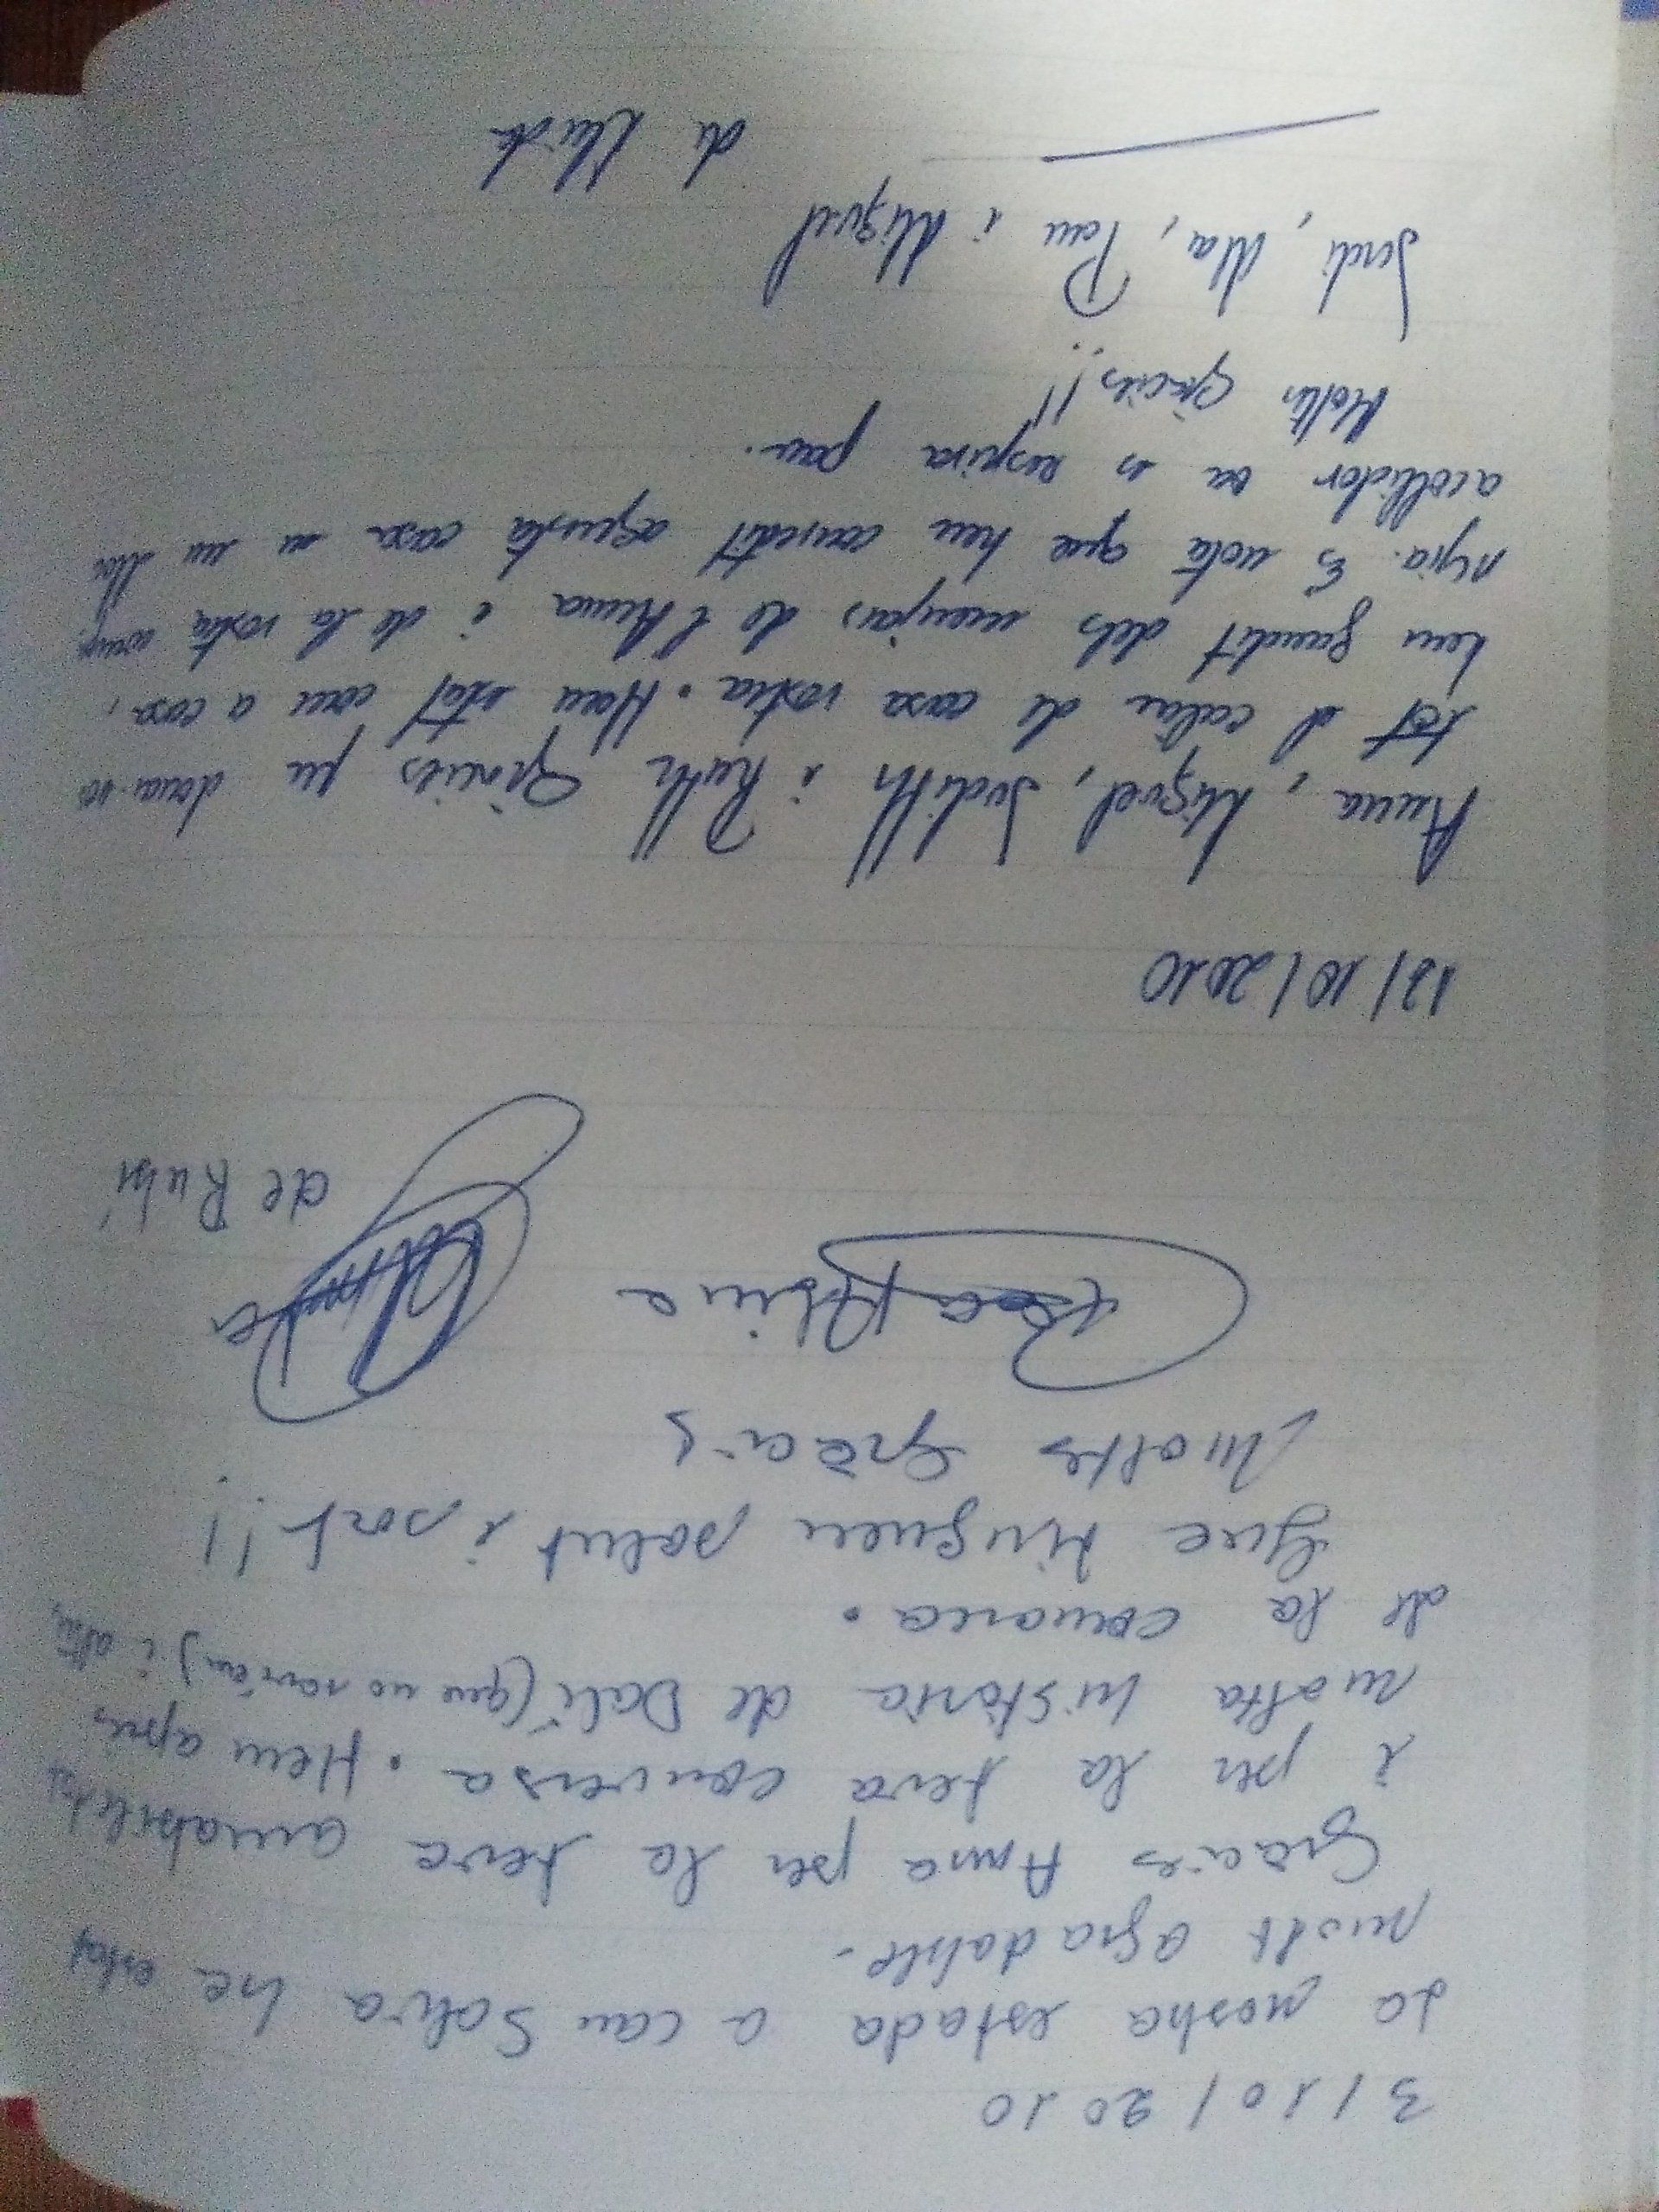 3/10/2010
La nostra estada a can Salva ha estat
molt agradable.
Gràcies Anna per la teva amabilitat
i per la teva conversa. Hem après
molta història de Dalí (que no sabíem) i altres
de la comarca.
Que tingueu salut i sort!!
Moltes gràcies
de Rubí
12/10/2010
Anna, Miquel, Judith i Ruth Gràcies per donar-nos
tot el caliu de casa vostra. Hem estat com a casa,
hem gaudit dels menjars de l'Anna i de la vostra comp-
nyia. És nota que heu convertit aquesta casa en un lloc
acollidor on es respira pau.
Moltes gràcies!!
Jordi, Mar, Pau i Miquel
de Lleida